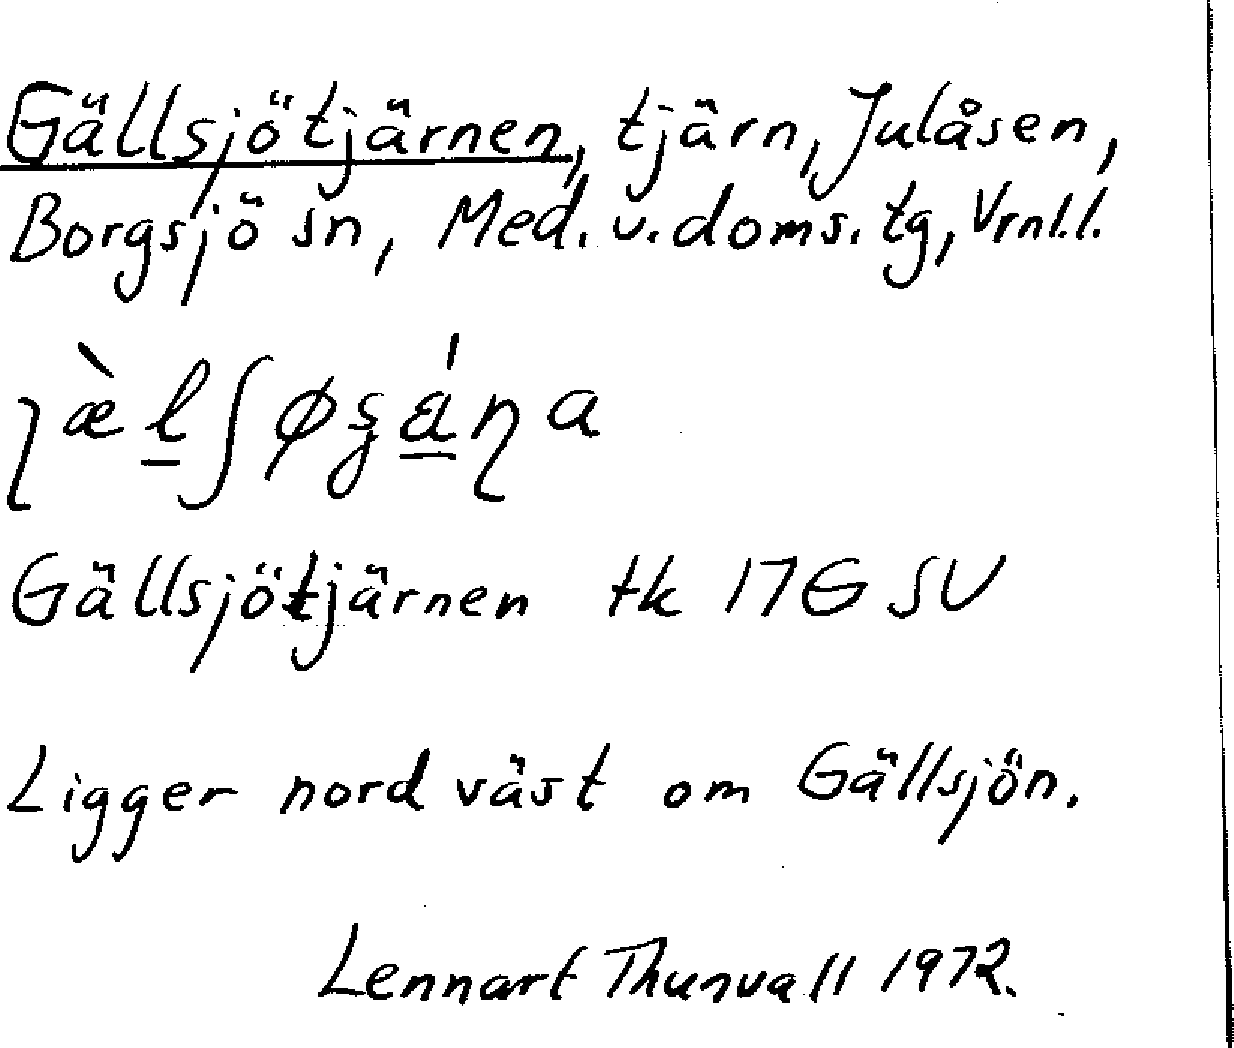 Gällsjötjärnen, tjärn, Julåsen,
Borgsjö sn, Med. v. doms. tg, Vrnl.l.
Gällsjötjärnen tk 17G SV
Ligger nordväst om Gällsjön.
Lennart Thunvall 1972.